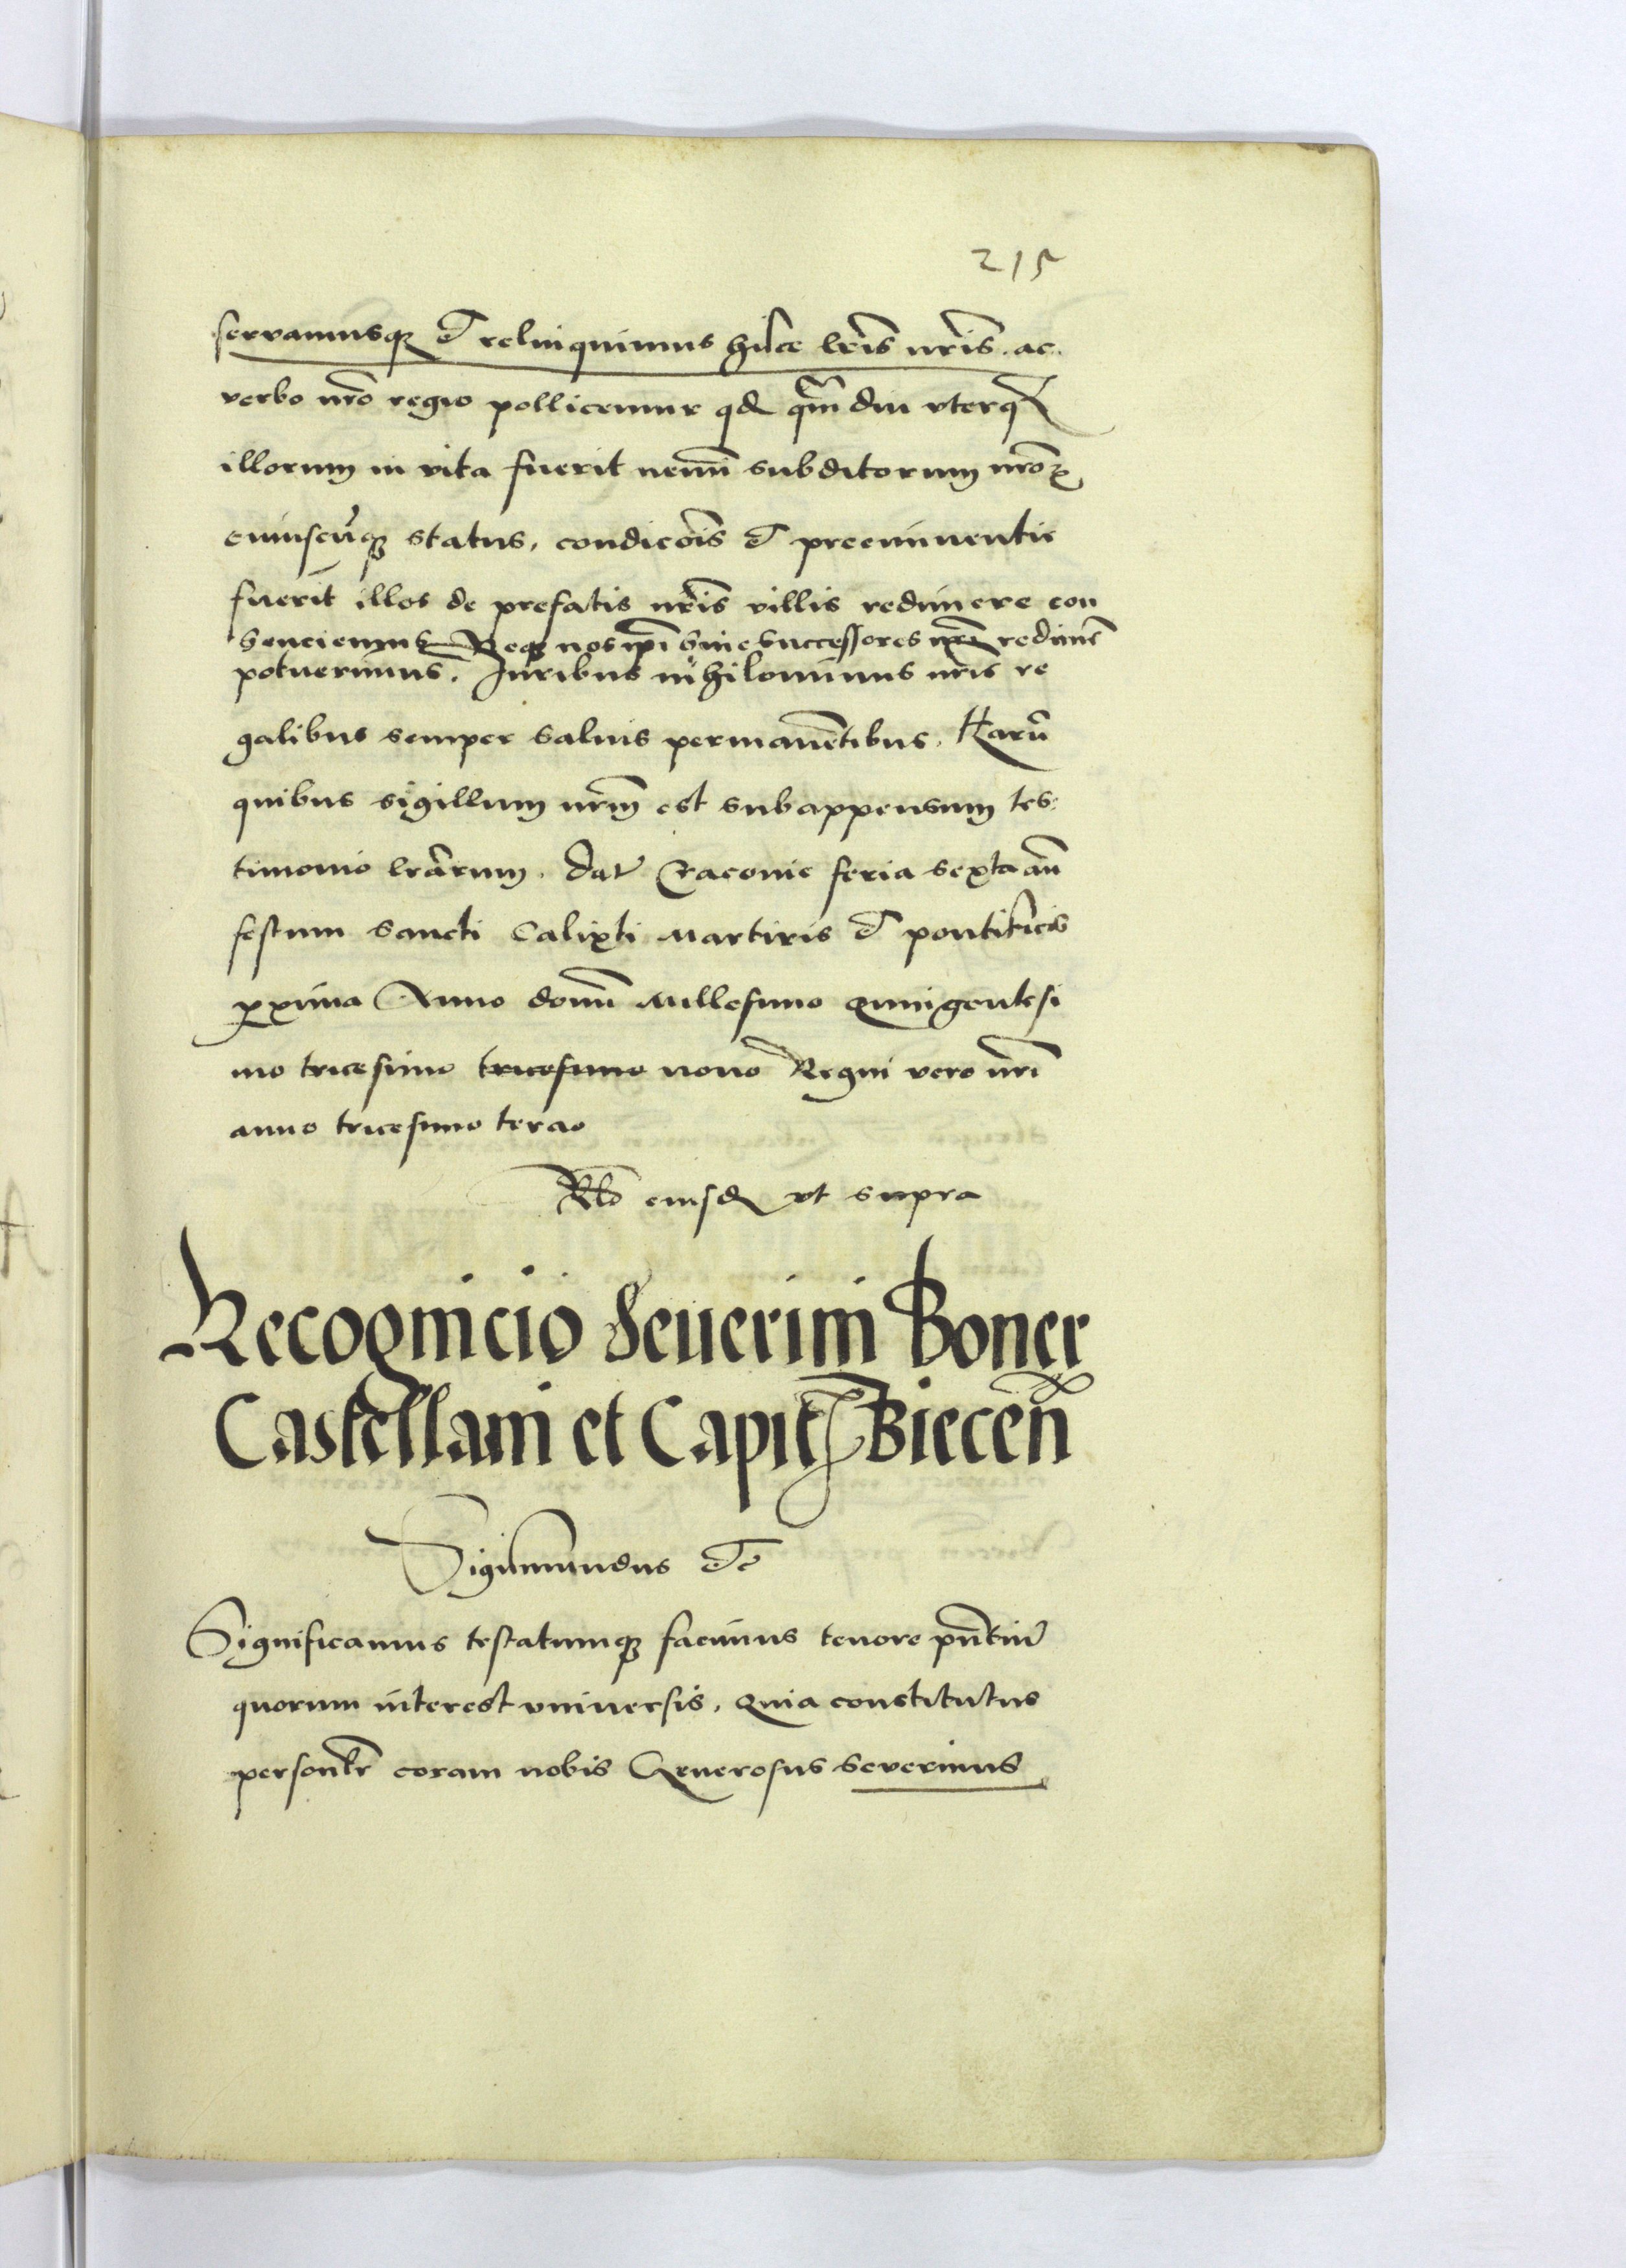 215
servamusq₃ et relinquimus hisce lr̄is nr̄is. ac
verbo nr̄o regio pollicemur qd q̄mdiu vterq₃
illorum in vita fuerit nemī subditorum nr̄oꝝ
cuiuscūq₃ status, condicōis et preeminentie
fuerit illos de prefatis nr̄is villis redimere con
senciemus Neq₃ nos ip̄i siue successores redimē
potuerimus. Juribus nihilominus nr̄is re
galibus semper saluis permanētibus. Harū
quibus sigillum nr̄m est subappensum tes
timonio lrārum. Dat Cracovie feria sexta an̄
festum sancti Calixti Martiris et pontificis
ꝓxima Anno domī Millesimo Quingentesi
mo tricesimo tricesimo nono Regni vero nr̄i
anno tricesimo tercio
Rlō eiusd vt supra
Recognicio Seuerini Boner
Castellani et Capit Biecen̄
Sigismundus etc
Significamus testatumq₃ facimus tenore pn̄tiū
quorum interest vniuersis. Quia constitutus
personlr̄ coram nobis Generosus Severinus